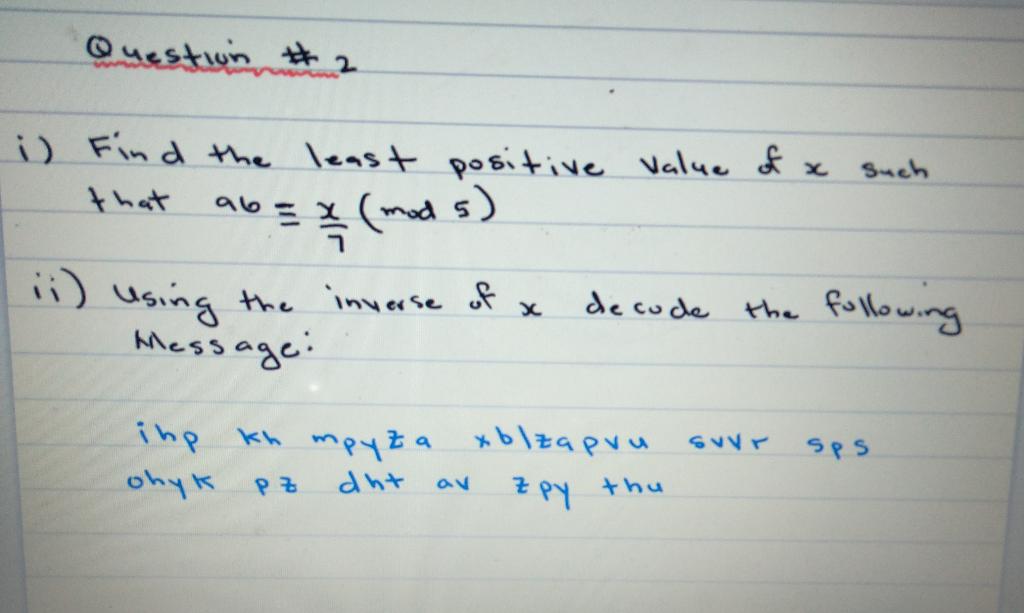 Question # 2
i) Find the least positive value of x such
that 96 ≡ x/7 (mod 5)
ii) Using the inverse of x decode the following
Message:
ihp kh mpyza xblzapvu svvr sps
ohyk pz dht av zpy thu